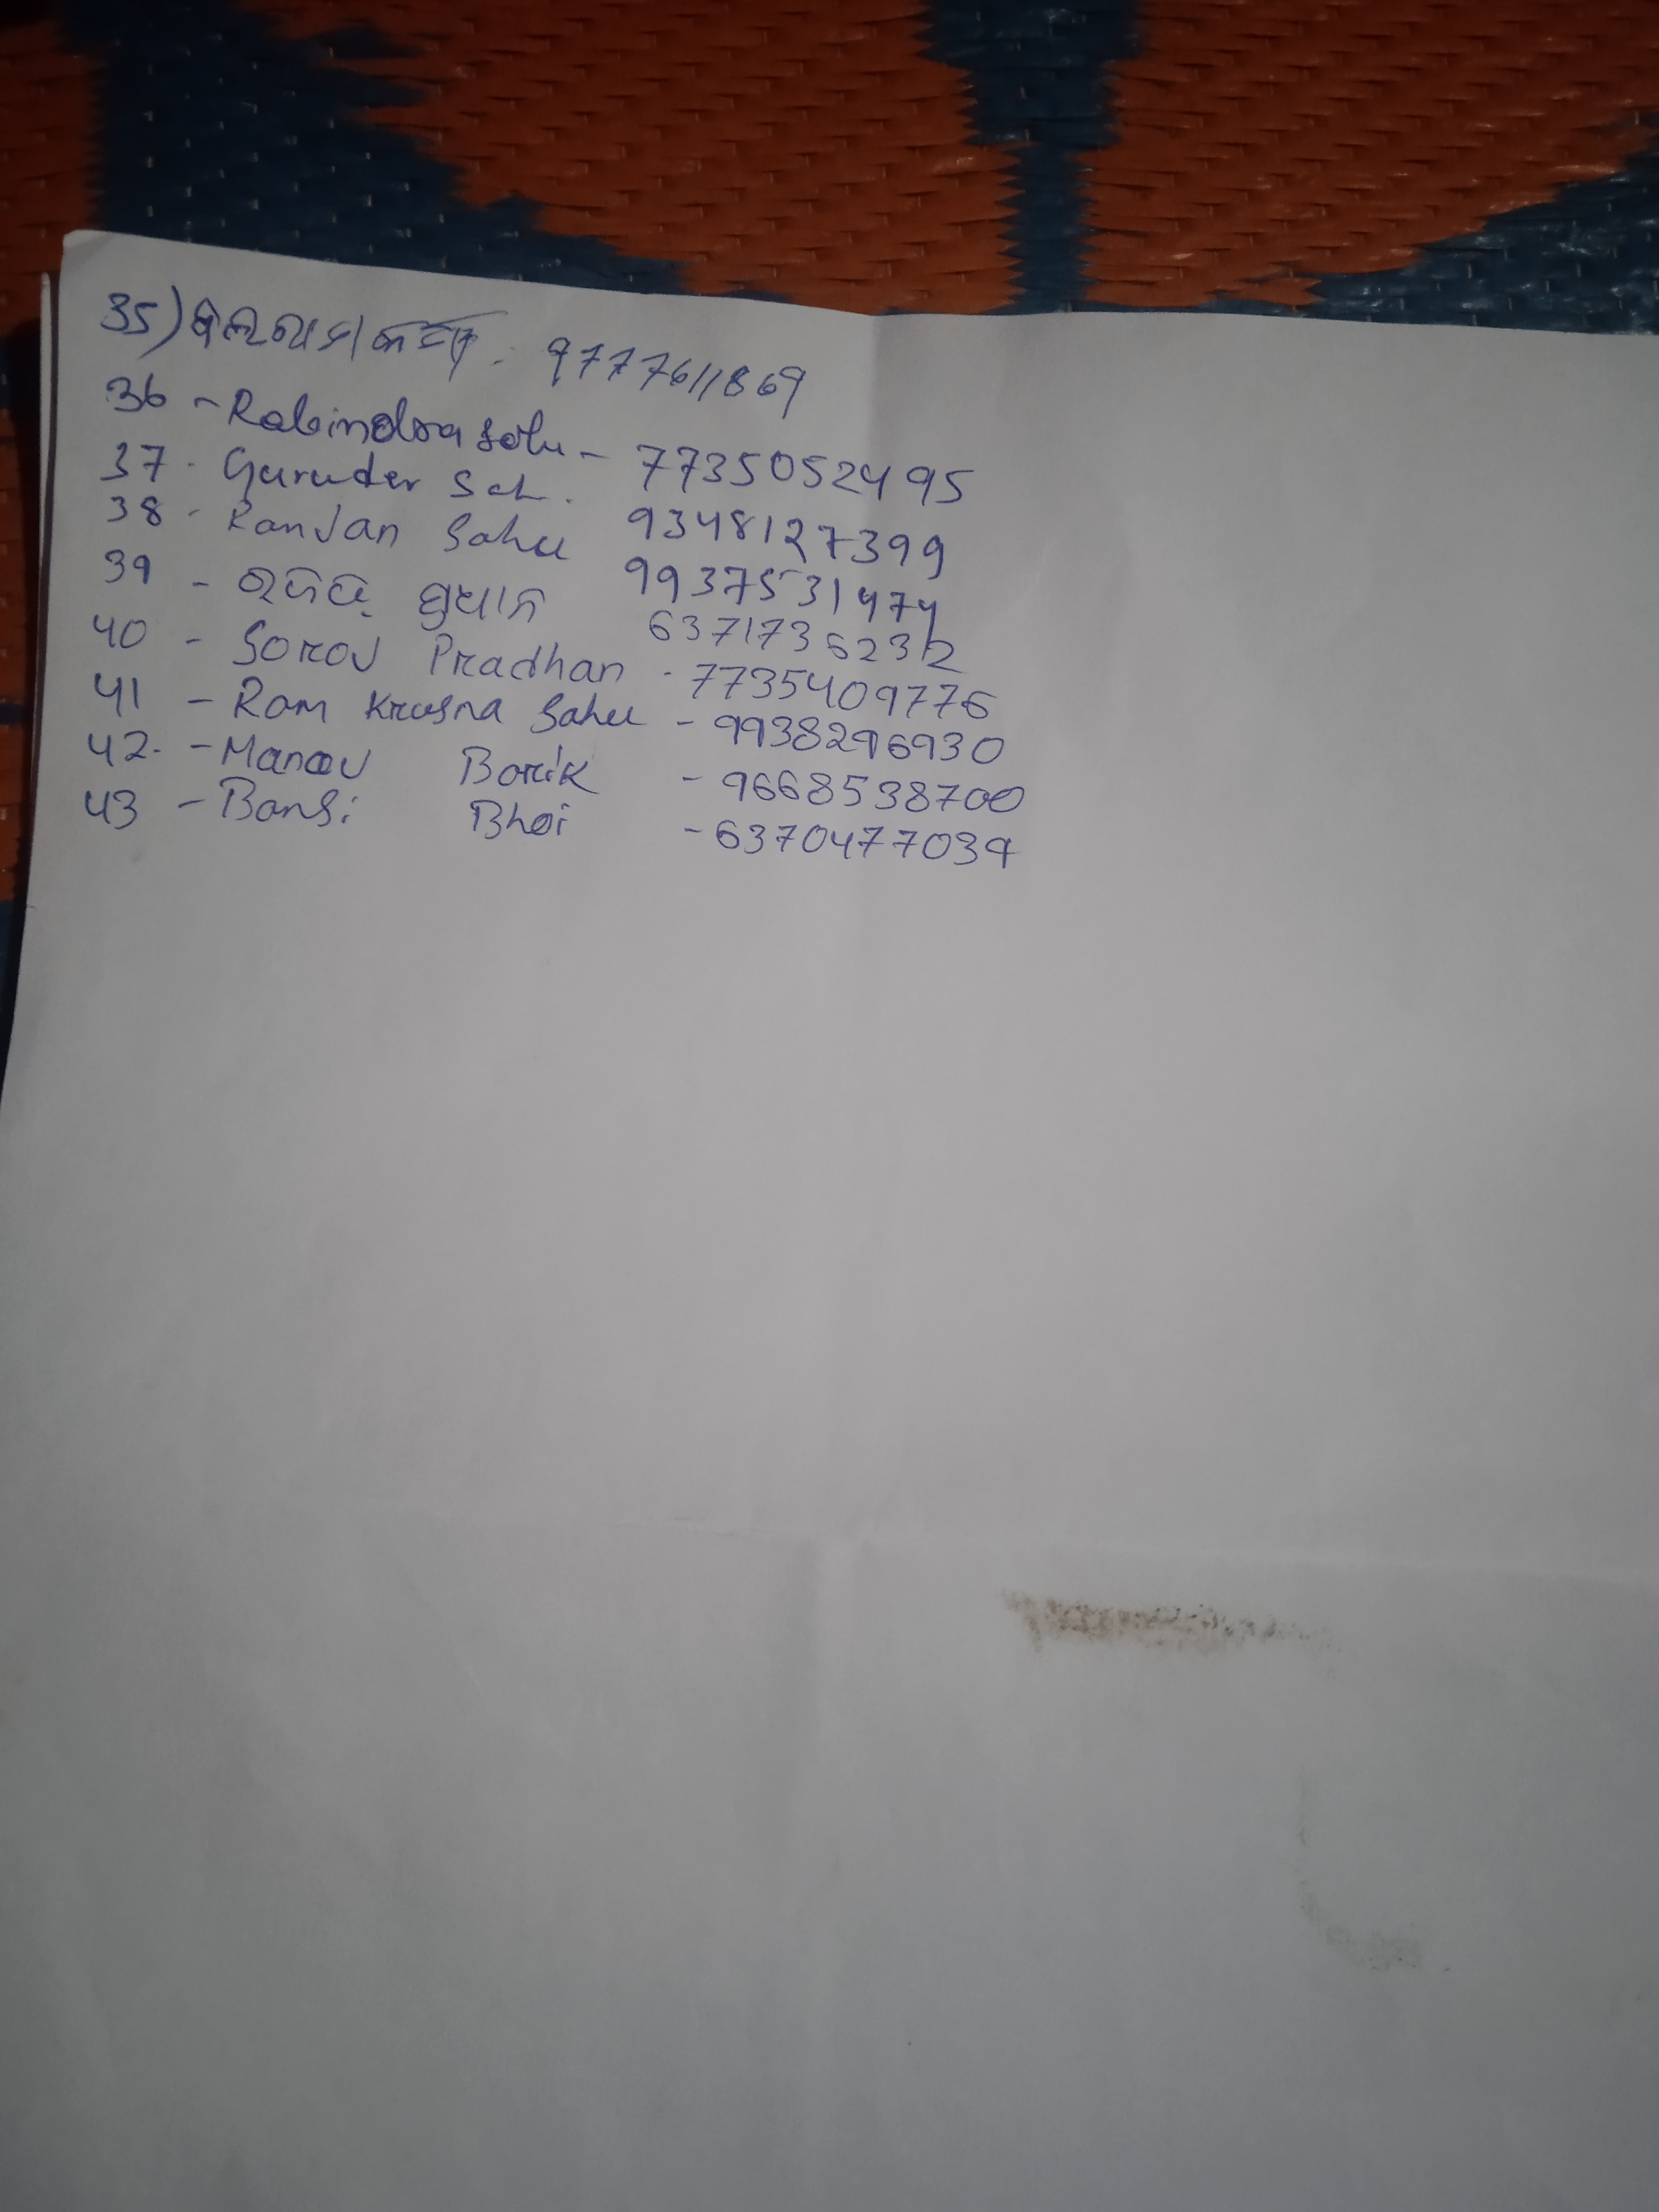 35) 9777611869
36 - Rabindra Sahu - 7735052495
37 - Gurudev Sah. 9348127399
38 - Ranjan Sahu 9937531474
39 - ପ୍ରଧାନ 6371736232
40 - Sorov Pradhan - 7735409776
41 - Ram Krusna Sahu - 9938296930
42 - Manoj Borik - 9668538700
43 - Bansi Bhoi - 6370477039